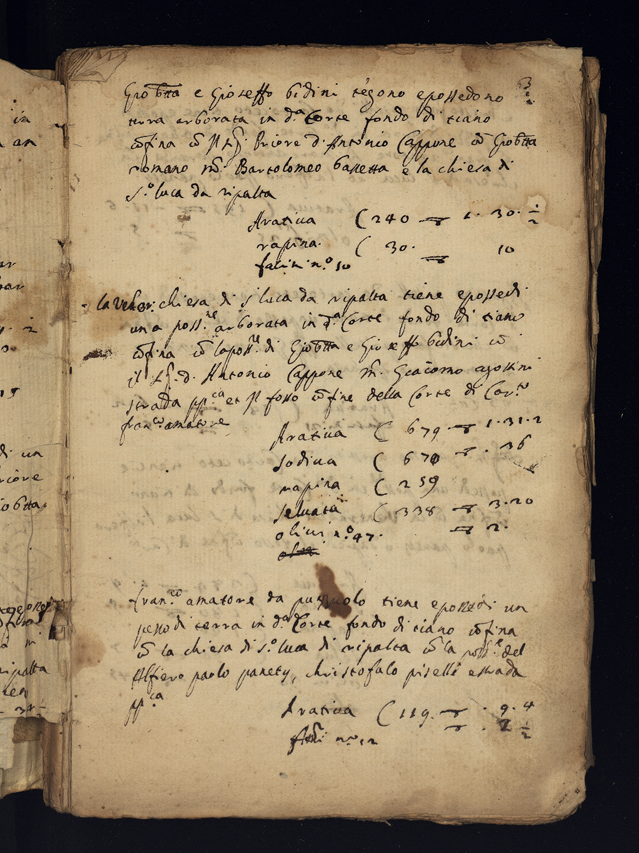 3
Gio btta e Gioseffo bidini tegono epossedono
terra arborata in da Corte fondo di tiano
cofina co il Sr Priore d. Antonio Cappone co Giobtta
romano mo. Bartolomeo bassetta e la chiesa di
So luca da ripalta
Arativa ( 240 1. 30.
rapina ( 30. 10
no 10
la Vener. chiesa di S luca da ripalta tiene epossedi
una possne arborata in da Corte fondo di tiano
cofina co la possne di Giobtta e Gioseffo bidini co
il Sr d. Antonio Cappone mo. Giacomo agostini
strada ppca et il fosso cofine della Corte di
franco amatore
Arativa ( 679 1.31.2
Sodiva ( 670 . 36
rapina ( 259
Selvata ( 338 3.20
olivi no 47. 2.
franco amatore da tiene epossedi un
pezzo di terra in da Corte fondo di tiano cofina
co la chiesa di So luca di ripalta co la possne del
Alfiero paolo panety, christofalo piselli estrada
ppca
Arativa ( 119. . 9. 4
no 12